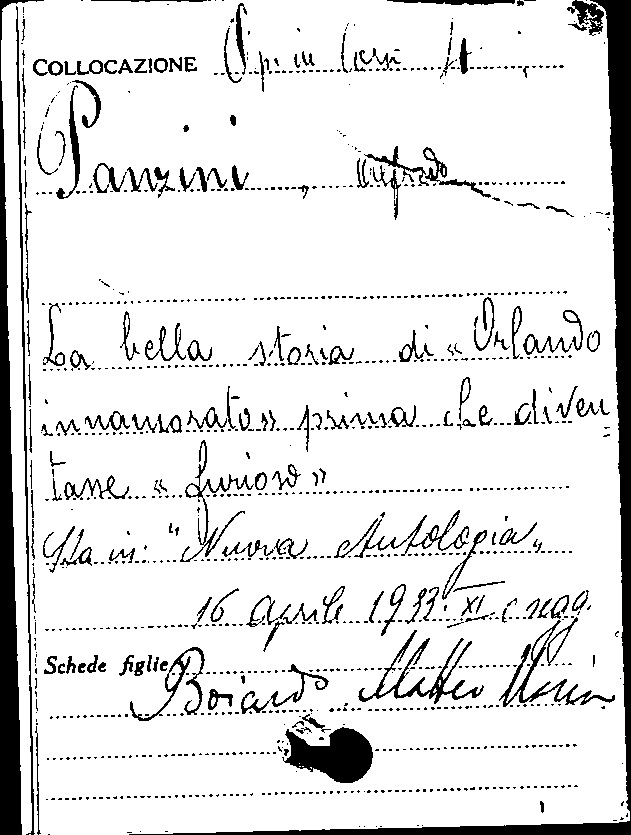 COLLOCAZIONE Op. in Cerv. 4
Panzini, Alfredo
La bella storia di « Orlando
innamorato» prima che diven
tasse « furioso »
Sta in: "Nuova Antologia„
16 aprile 1933. XI e segg.
Schede figlie
Boiardo Matteo Maria